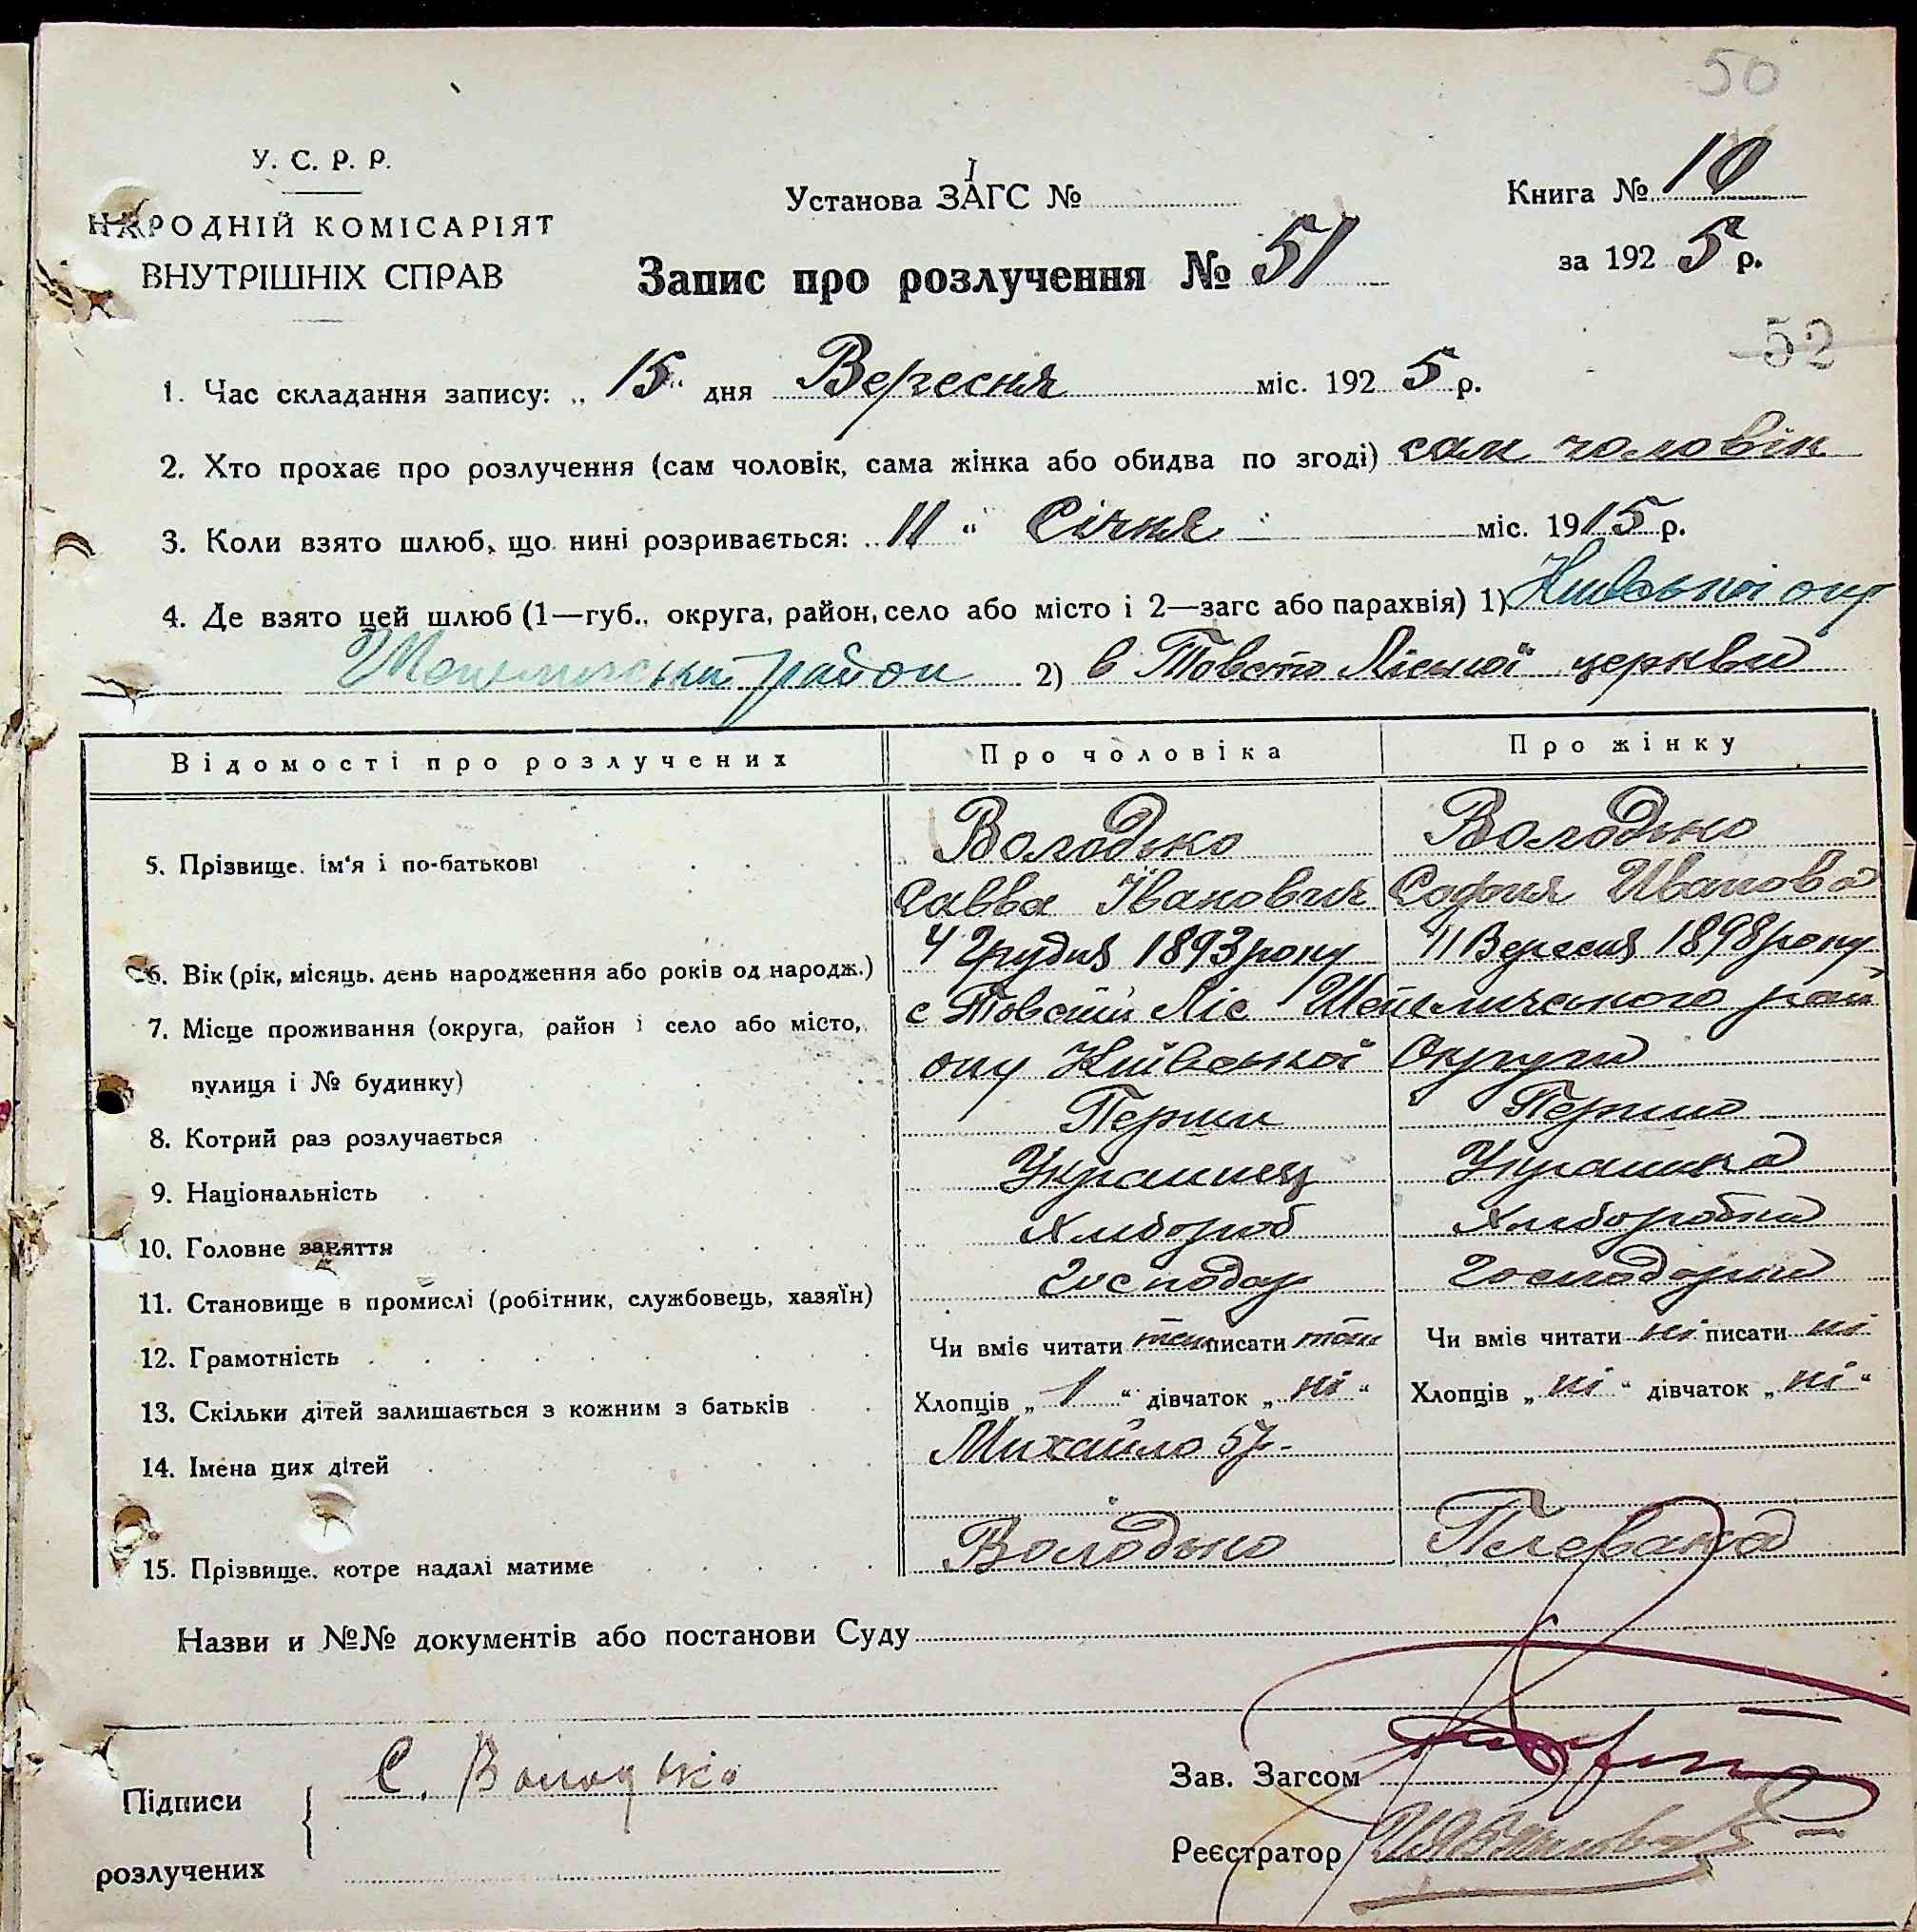 50
У. С. Р. Р.
НАРОДНІЙ КОМІСАРІЯТ
ВНУТРІШНІХ СПРАВ
Установа ЗАГС №
Книга № 10
за 1925 р.
Запис про розлучення № 51
52
1. Час складання запису: „ 15 " дня Вересня міс. 1925 р.
2. Хто прохає про розлучення (сам чоловік, сама жінка або обидва по згоді) сам чоловік
3. Коли взято шлюб, що нині розривається: 11 " Січня міс. 1915 р.
4. Де взято цей шлюб (1—губ., округа, район, село або місто і 2—загс або парахвія) 1) Київської окр
район 2) в Товсто Ліської церкви
Відомості про розлучених Про чоловіка Про жінку
5. Прізвище, ім'я і по-батькові Володько Володько
Савва Іванович София Иванова
6. Вік (рік, місяць, день народження або років од народж.) 4 Грудня 1893 року 11 Вересня 1898 року
7. Місце проживання (округа, район і село або місто, с Товстий Ліс Шепеличського рай
вулиця і № будинку) ону Київської Округи
8. Котрий раз розлучається Перший Перший
9. Національність Украинец Украинка
10. Головне заняття Хлибороб Хлиборобка
11. Становище в промислі (робітник, службовець, хазяїн) Господар Господарка
12. Грамотність Чи вміє читати так писати так Чи вміє читати ні писати ні
13. Скільки дітей залишається з кожним з батьків Хлопців „ 1 " дівчаток „ ні " Хлопців „ ні " дівчаток „ ні "
14. Імена цих дітей Михайло 5
15. Прізвище, котре надалі матиме Володько Плевака
Назви и №№ документів або постанови Суду
Підписи С. Володько Зав. Загсом
розлучених Реєстратор